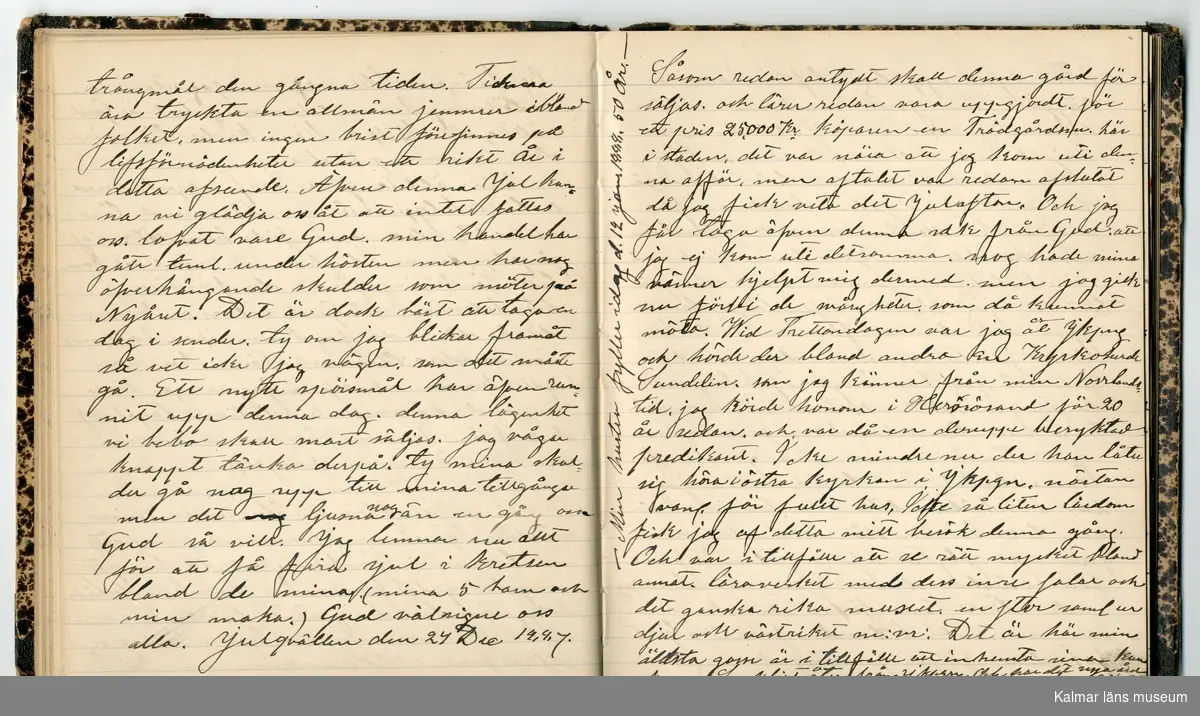 trångmål den gångna tiden. Tiderna
äro tryckta en allmän jemmer ibland
folket, men ingen brist förefinnes på
lifsförnödenheter utan ett rikt År i
detta afseende. Äfven denna Jul kun-
na vi glädja oss åt att intet fattas
oss. lofvat vare Gud. min handel har
gått tuml. under hösten men har nog
öfverhängande skulder som möter på
Nyåret. Det är dock bäst att taga en
dag i sender. ty om jag blickar framåt
så vet icke jag vägen, som det måste
gå. Ett nytt spörsmål har äfven run-
nit upp denna dag. denna lägenhet
vi bebo skall mast säljas. jag vågar
knappt tänka derpå. ty mina skul-
der gå nog upp till mina tillgångar
men det ljusnar nog än en gång om
Gud så vill. Jag lemnar nu allt
för att få fira jul i kretsen
bland de mina, (mina 5 barn och
min maka.) Gud välsigne oss
alla. Julqvällen den 24 Dec
Min hustru fyller idag d. 12 Jan. 50 År.
Såsom redan antydt skall denna gård för
säljas. och lärer redan vara uppgjordt. för
ett pris 25,000 Kr. Köparen en Trädgårdsm. här
i staden, det var nära att jag kom uti den-
na affär, men aftalet var redan afslutat
då jag fick veta det Julafton. Och jag
får taga äfven denna sak från Gud. att
jag ej kom uti detsamma. nog hade mina
vänner hjelpt mig dermed. men jag gick
nu förbi de svårigheter som då kunnat
möta. Wid Trettondagen var jag åt Wkpng
och hörde der bland andra en Kyrkoherde
Sundelin. som jag känner från min Norrlands-
tid. jag hörde honom i Hernösand för 20
år sedan. och var då en deruppe beryktad
predikant. Icke mindre nu der han låter
sig höra i östra kyrkan i Wkpgn. nästan
för fullt hus, Icke så liten lärdom
fick jag af detta mitt besök denna gång.
Och var i tillfälle att se rätt mycket bland
annat. läroverket med dess inre salar och
det ganska rika museet. en stor saml. ur
djur och växtriket m: m: Det är här min
äldsta gosse är i tillfälle att inhemta sina kun
Kalmar läns museum